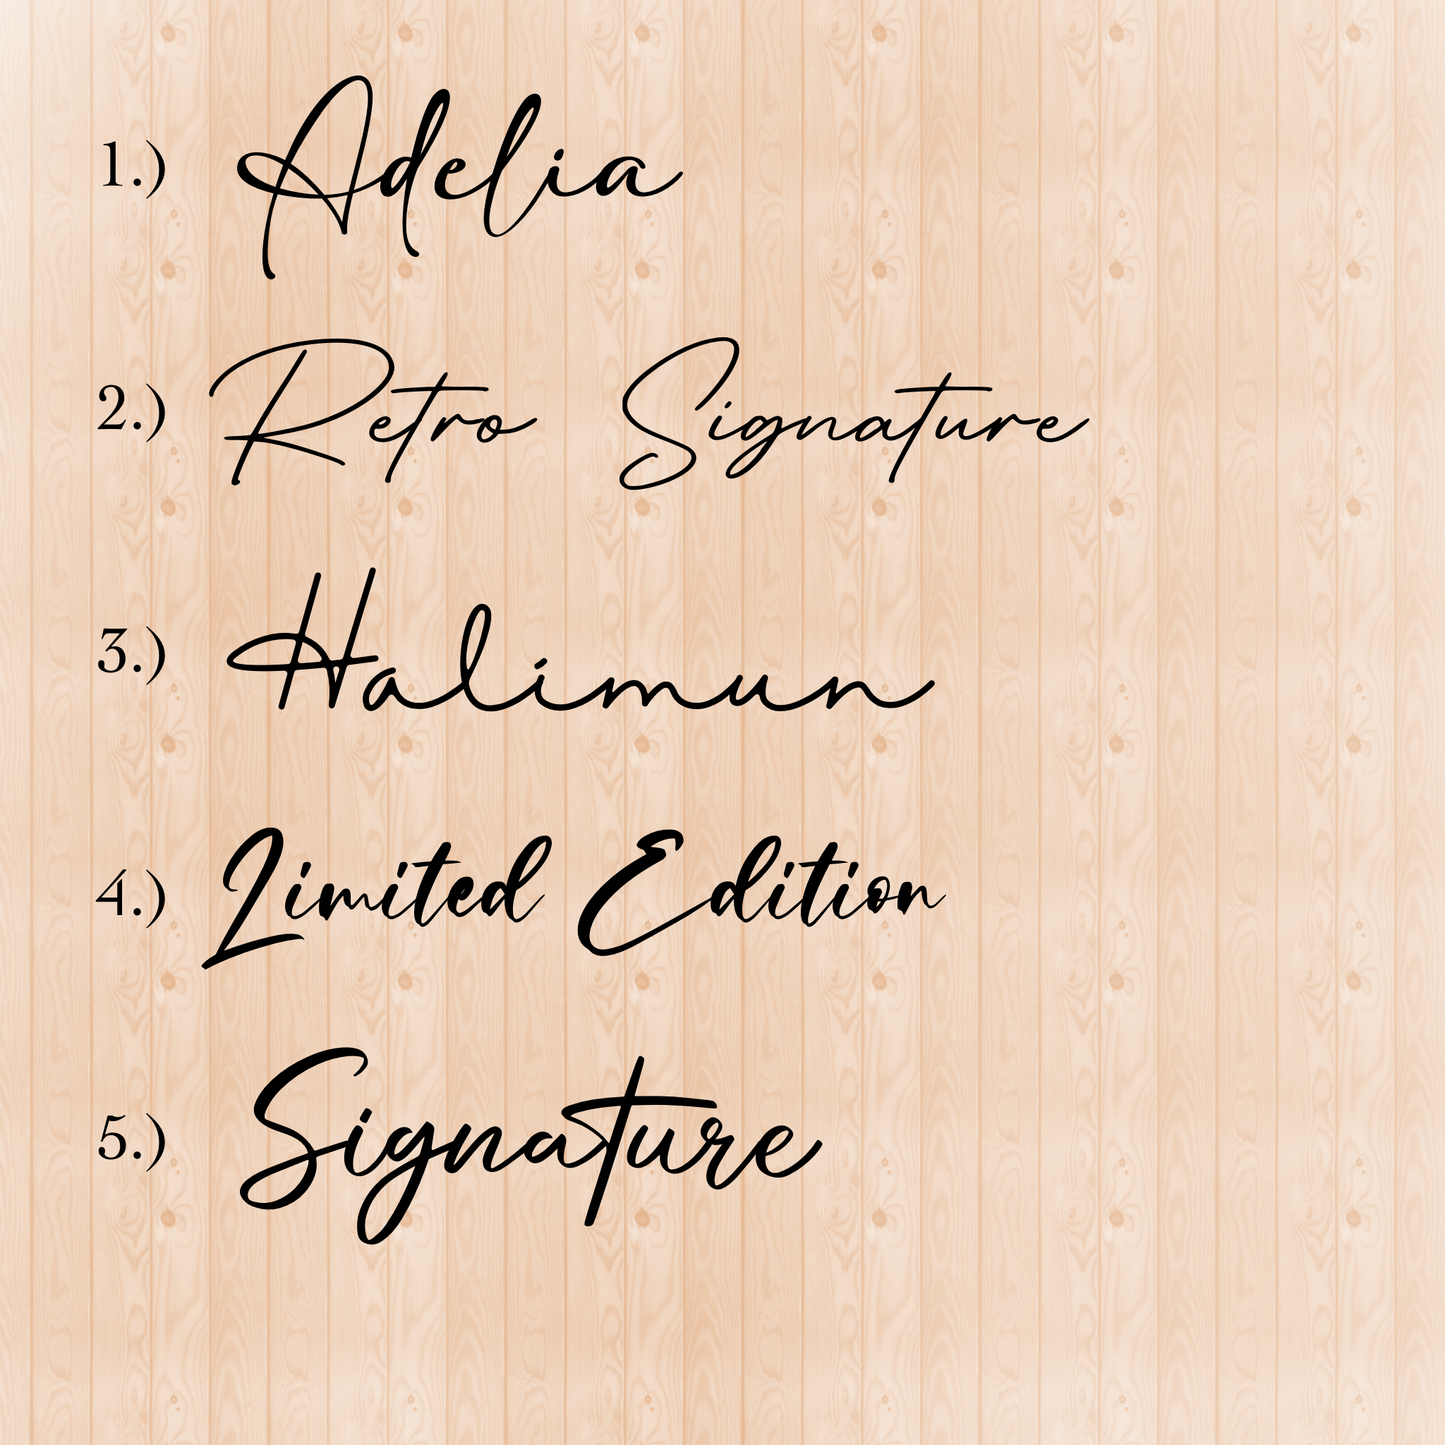 1.) Adelia
2.) Retro Signature
3.) Halimun
4.) Limited Edition
5.) Signature